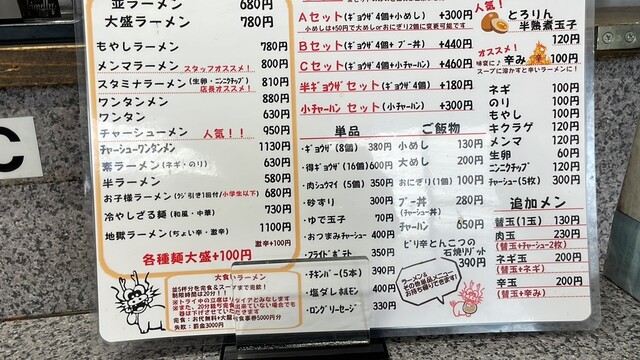 並ラーメン 680円
大盛ラーメン 780円
もやしラーメン 780円
メンマラーメン スタッフオススメ! 800円
スタミナラーメン (生卵・ニンニクチップ) 店長オススメ! 810円
ワンタンメン 880円
ワンタン 630円
チャーシューメン 人気!! 950円
チャーシューワンタンメン 1130円
素ラーメン (ネギ・のり) 630円
半ラーメン 580円
お子様ラーメン (クジ引き1回付/小学生以下) 680円
冷やしざる麺 (和風・中華) 730円
地獄ラーメン (ちょい辛・激辛) 1100円
激辛+100円
各種麺大盛+100円
大食いラーメン
並5杯分を完食&スープまで完飲!
制限時間は20分!!
※トイレ中の立席はリタイアとみなします
完食:お代無料+大龍お食事券5000円分
失敗:罰金3000円
Aセット (ギョウザ4個+小めし) +300円
小めしは+50円で大めしかおにぎり2個に変更可能です
Bセット (ギョウザ4個+ブー丼) +440円
Cセット (ギョウザ4個+小チャーハン) +460円
半ギョウザセット (ギョウザ4個) +180円
小チャーハンセット (小チャーハン) +300円
単品
・ギョウザ (8個) 380円
・得ギョウザ (16個) 600円
・肉シュウマイ (5個) 350円
・砂ずり 300円
・ゆで玉子 70円
・おつまみチャーシュー 400円
・フライドポテト 350円
・チキンバー (5本) 390円
・塩ダレホルモン 400円
・ロングソーセージ 330円
ご飯物
小めし 130円
大めし 200円
おにぎり (1個) 100円
ブー丼 (チャーシュー丼) 280円
チャーハン 650円
ピリ辛とんこつの石焼リゾット 390円
ラーメン&その他単品メニューお持ち帰りできます!
人気!
とろりん半熟煮玉子 120円
オススメ!
味変に♪ 辛み 100円
スープに溶かすと辛いラーメンに!
ネギ 100円
のり 100円
もやし 100円
キクラゲ 100円
メンマ 120円
生卵 60円
ニンニクチップ 120円
チャーシュー (5枚) 300円
追加メン
替玉 (1玉) 130円
肉玉 230円
(替玉+チャーシュー2枚)
ネギ玉 200円
(替玉+ネギ)
辛玉 200円
(替玉+辛み)